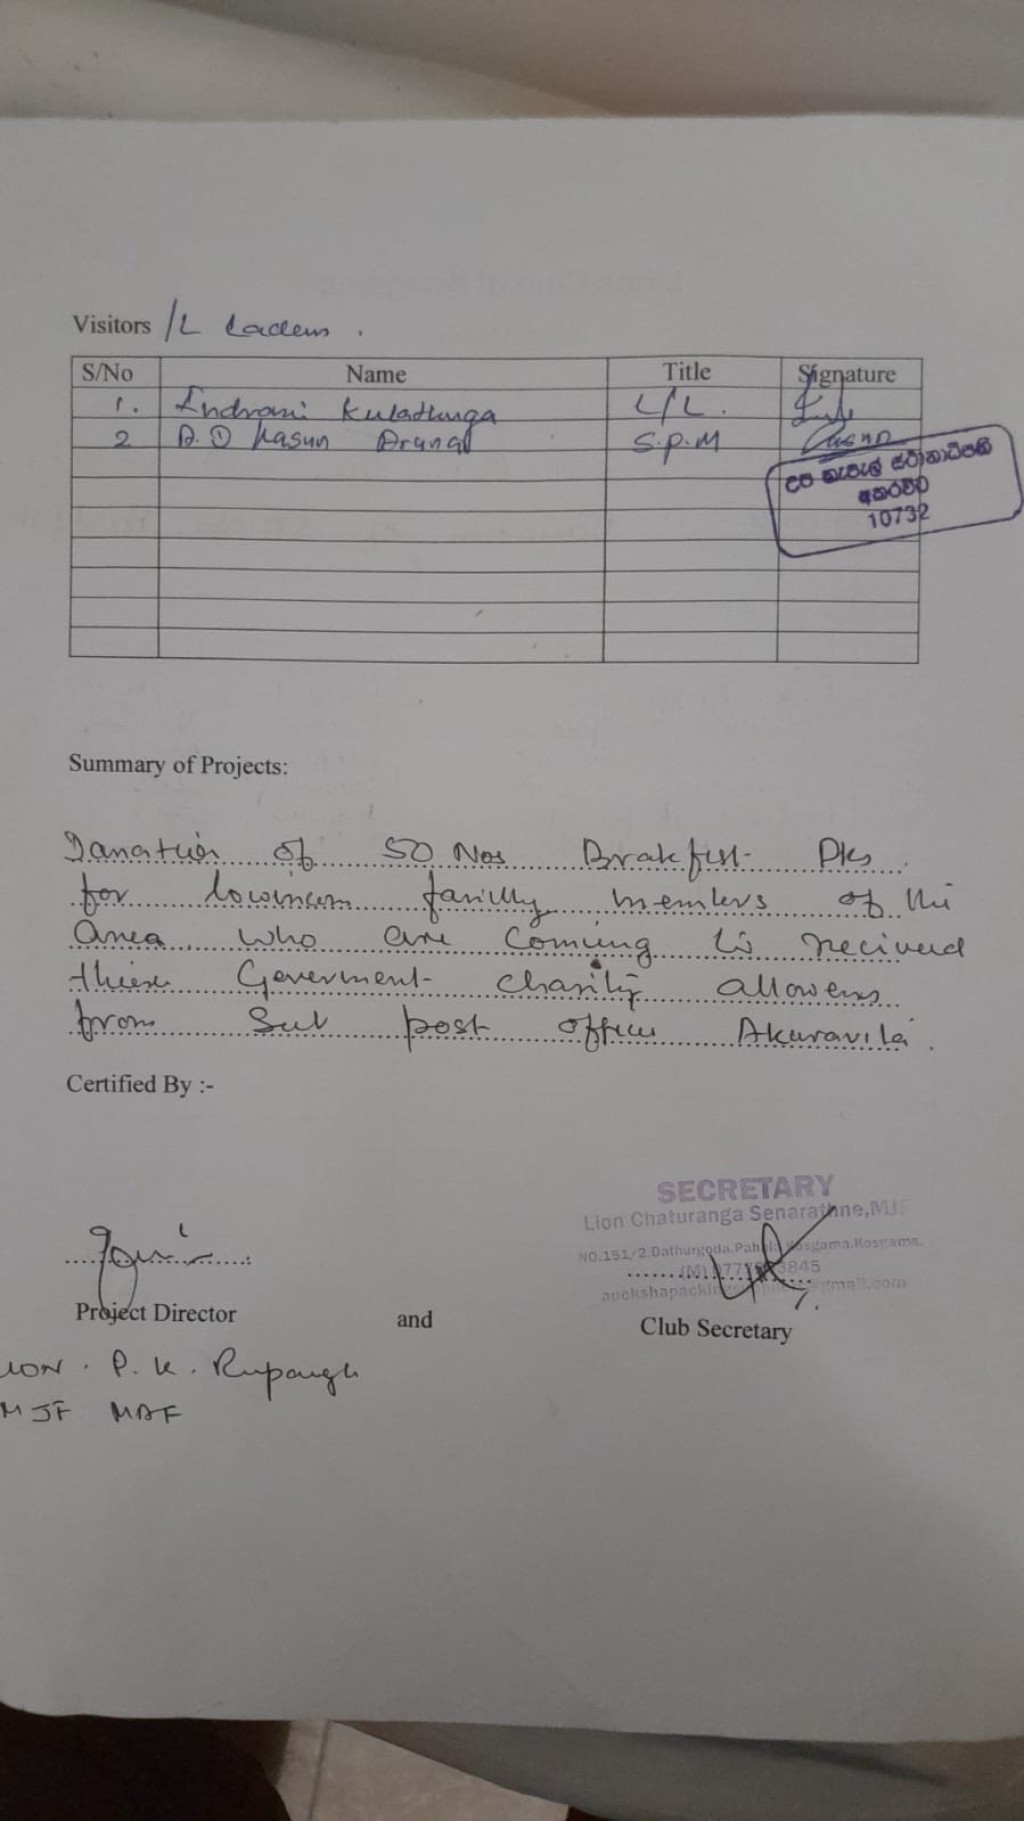 Visitors /L Ladens.
S/No Name Title Signature
1. Indrani Kulathunga L/L.
2 D. Lasun S.P.M
උප තැපැල් ස්ථානාධිපති
අකරවිට
10732
Summary of Projects:
Danation of 50 Nos Brakfist Pks.
for lowincom familly members of the
Area who are coming to recived
their Goverment charity allowens
from Sub post office Akuravita.
Certified By :-
SECRETARY
Lion Chaturanga Senarathne,MJF
NO.151/2.Dathurgoda,Pahala Kosgama.Kosgama.
Project Director and Club Secretary
LION. P. K.
MJF